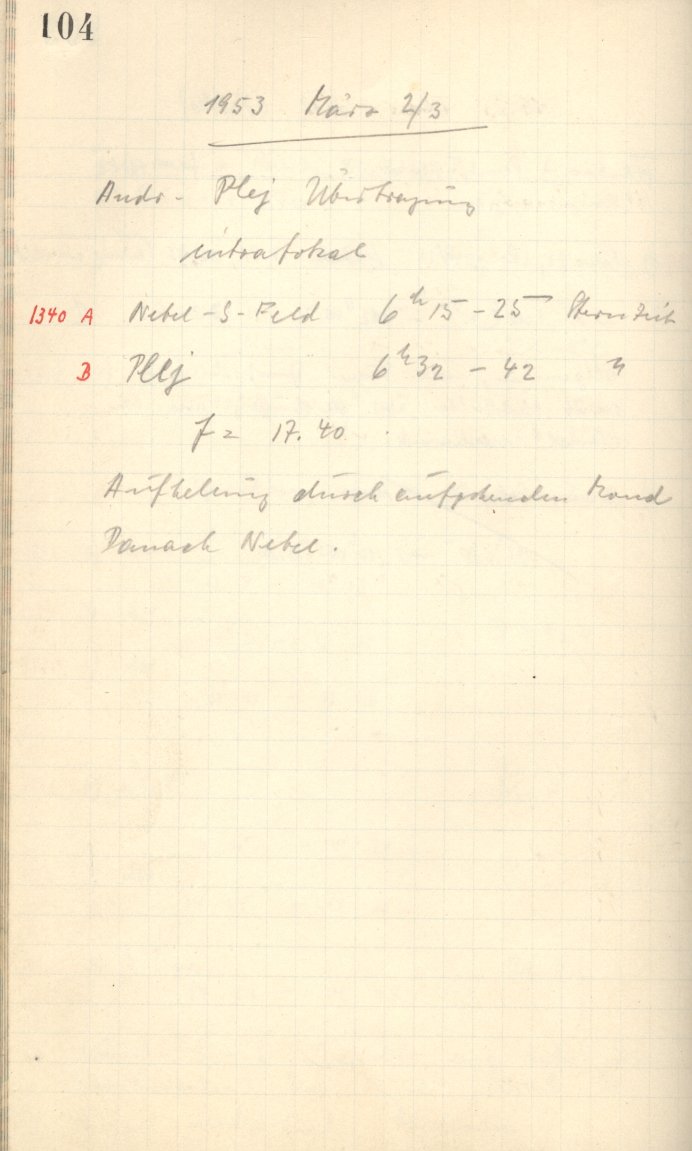 104
1953 März 2/3
Andr - Plej Übertragung
intrafokal
1340 A Nebel - S - Feld 6h 15 - 25 Sternzeit
B Plej 6h 32 - 42 "
f = 17.40
Aufhelung durch aufgehenden Mond
Danach Nebel.